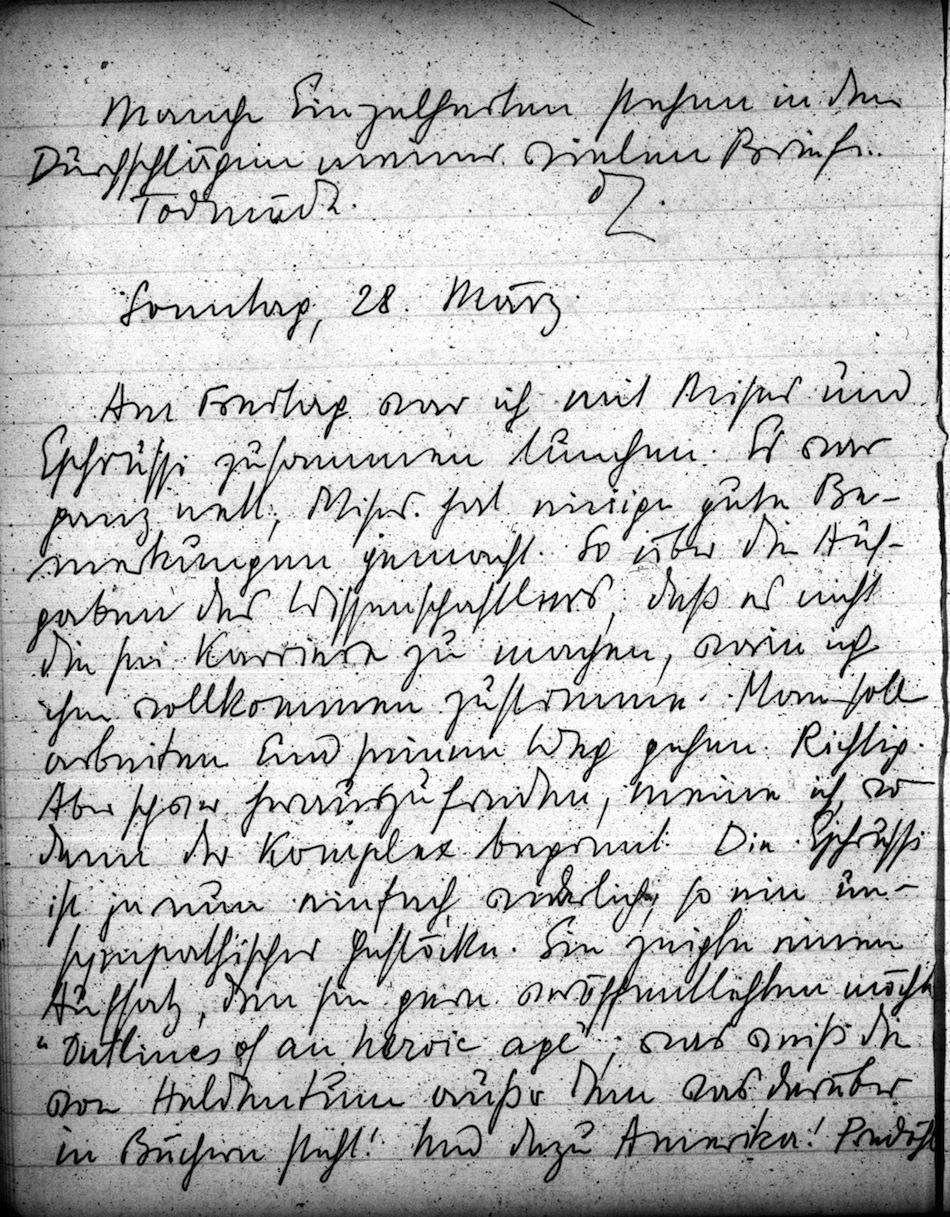 Manche Einzelheiten stehen in den
Durchschlägen meiner vielen Briefe.
Todmüde.
Sonntag, 28. März
Am Freitag war ich mit Mises und
Ephrussi zusammen lunchen. Es war
ganz nett, Mises hat einige gute Be-
merkungen gemacht. So über die Auf-
gaben des Wissenschaftlers, daß es nicht
die sei Karriere zu machen, worin ich
ihm vollkommen zustimme. Man soll
arbeiten und seinen Weg gehen. Richtig.
Aber schwer herauszufinden, meine ich, wo
dann der Komplex beginnt. Die Ephrussi
ist ja nun einfach widerlich, so ein un-
sympathischer. Sie zeigte einen
Aufsatz, den sie gern veröffentlichen möchte
"Outlines of an heroic age", was weiß die
von Heldentum außer dem was darüber
in Büchern steht! Und dazu Amerika!